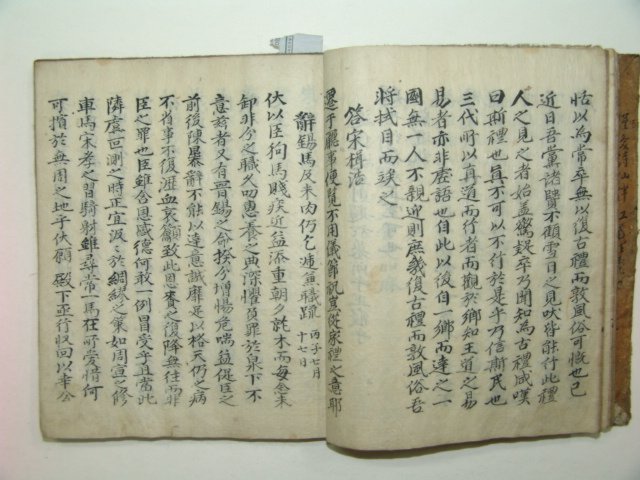 恬以為常卒無以復古禮而敦風俗可慨也已
近日吾黨諸賢不顧雪日之見吠皆能行此禮
人之見之者始盖驚疑卒乃聞知為古禮咸嘆
曰斯禮也真不可以不行於是乎乃信斯民也
三代所以直道而行者而觀於鄉知王道之易
易者亦非虛語也自此以後自一鄉而達之一
國無一人不親迎則庶幾復古禮而敦風俗吾
將拭目而竢之
答宋梅浩
遷于廳事便覧不用儀節祝宜從家禮之意耶
辭錫馬及米肉仍乞遞無職疏 丙子七月十七日
伏以臣狗馬賤疾近益添重朝夕就木而每念未
卸非分之職又叨惠養之典深懼負罪於泉下不
意玆者又有晋錫之命揆分增惕危喘益促臣之
前後陳暴辭不能以達意誠靡足以格天仍之病
不省事不復瀝血哀籲致此恩賚之復降無往而非
臣之罪也臣雖含恩感德何敢一例冒受乎且當此
隣虞叵測之時正宜汲汲於綢繆之策如周宣之修
車馬宋孝之習騎射雖尋常一馬在所愛惜何
可擲於無用之地乎伏願 殿下亟行收回以幸公